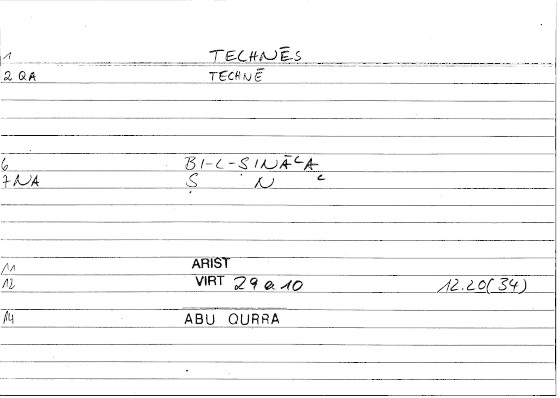 1 TECHNĒS
2 QA TECHNĒ
6 BI-L-ṢINĀᶜA
7 NA Ṣ N ᶜ
11 ARIST
12 VIRT 29 a 10 12.20(34)
14 ABU QURRA